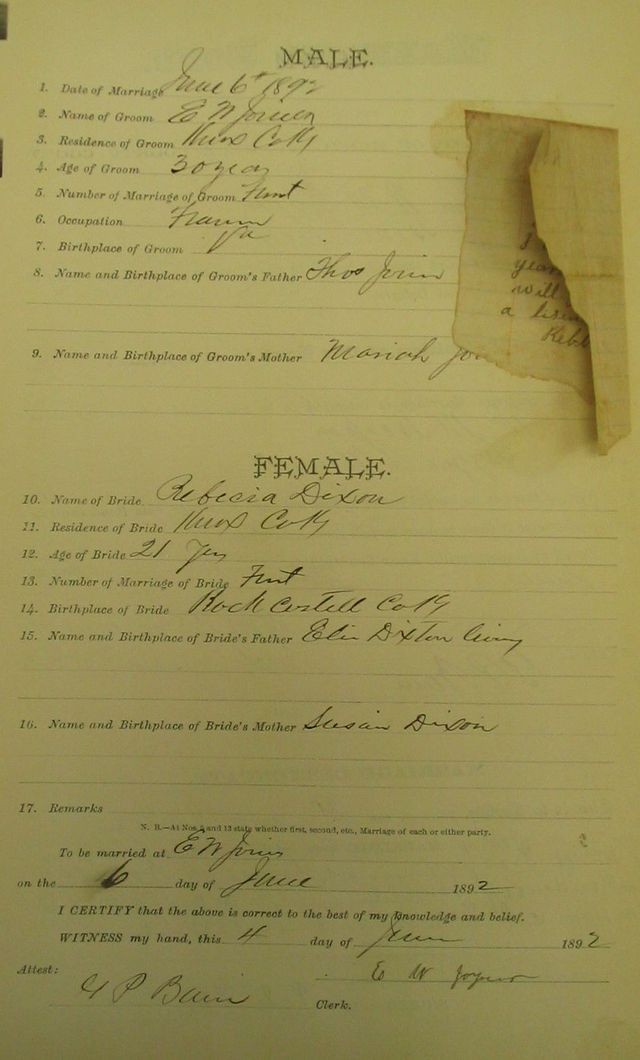 MALE.
1. Date of Marriage June 6th 1892
2. Name of Groom E W
3. Residence of Groom Knox Co Ky
4. Age of Groom 30 years
5. Number of Marriage of Groom First
6. Occupation Farmer
7. Birthplace of Groom Va
8. Name and Birthplace of Groom's Father Thos
year
will
a
Reb
9. Name and Birthplace of Groom's Mother Mariah
FEMALE.
10. Name of Bride Rebecia Dixon
11. Residence of Bride Knox Co Ky
12. Age of Bride 21 Yrs
13. Number of Marriage of Bride First
14. Birthplace of Bride Rock Castell Co Ky
15. Name and Birthplace of Bride's Father Dixton living
16. Name and Birthplace of Bride's Mother Susan Dixon
17. Remarks
N. B.—At Nos. 5 and 13 state whether first, second, etc., Marriage of each or either party.
To be married at E W
on the 6 day of June 1892
I CERTIFY that the above is correct to the best of my knowledge and belief.
WITNESS my hand, this 4 day of June 1892
Attest: E W Joyner
Clerk.